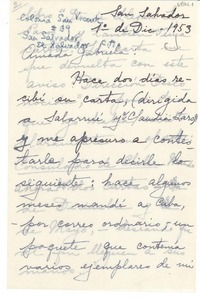 Colonia San Vicente
# 39
San Salvador
El Salvador, C.A.
San Salvador
1º de Dic. - 1953
Hace dos días re-
cibí su carta, (dirigida
a Salarrué y Claudia Lars)
y me apresuro a contes-
tarla para decirle lo
siguiente: hace algunos
meses mandé a Ciba,
por correo ordinario, un
paquete que contenía
varios ejemplares de mi